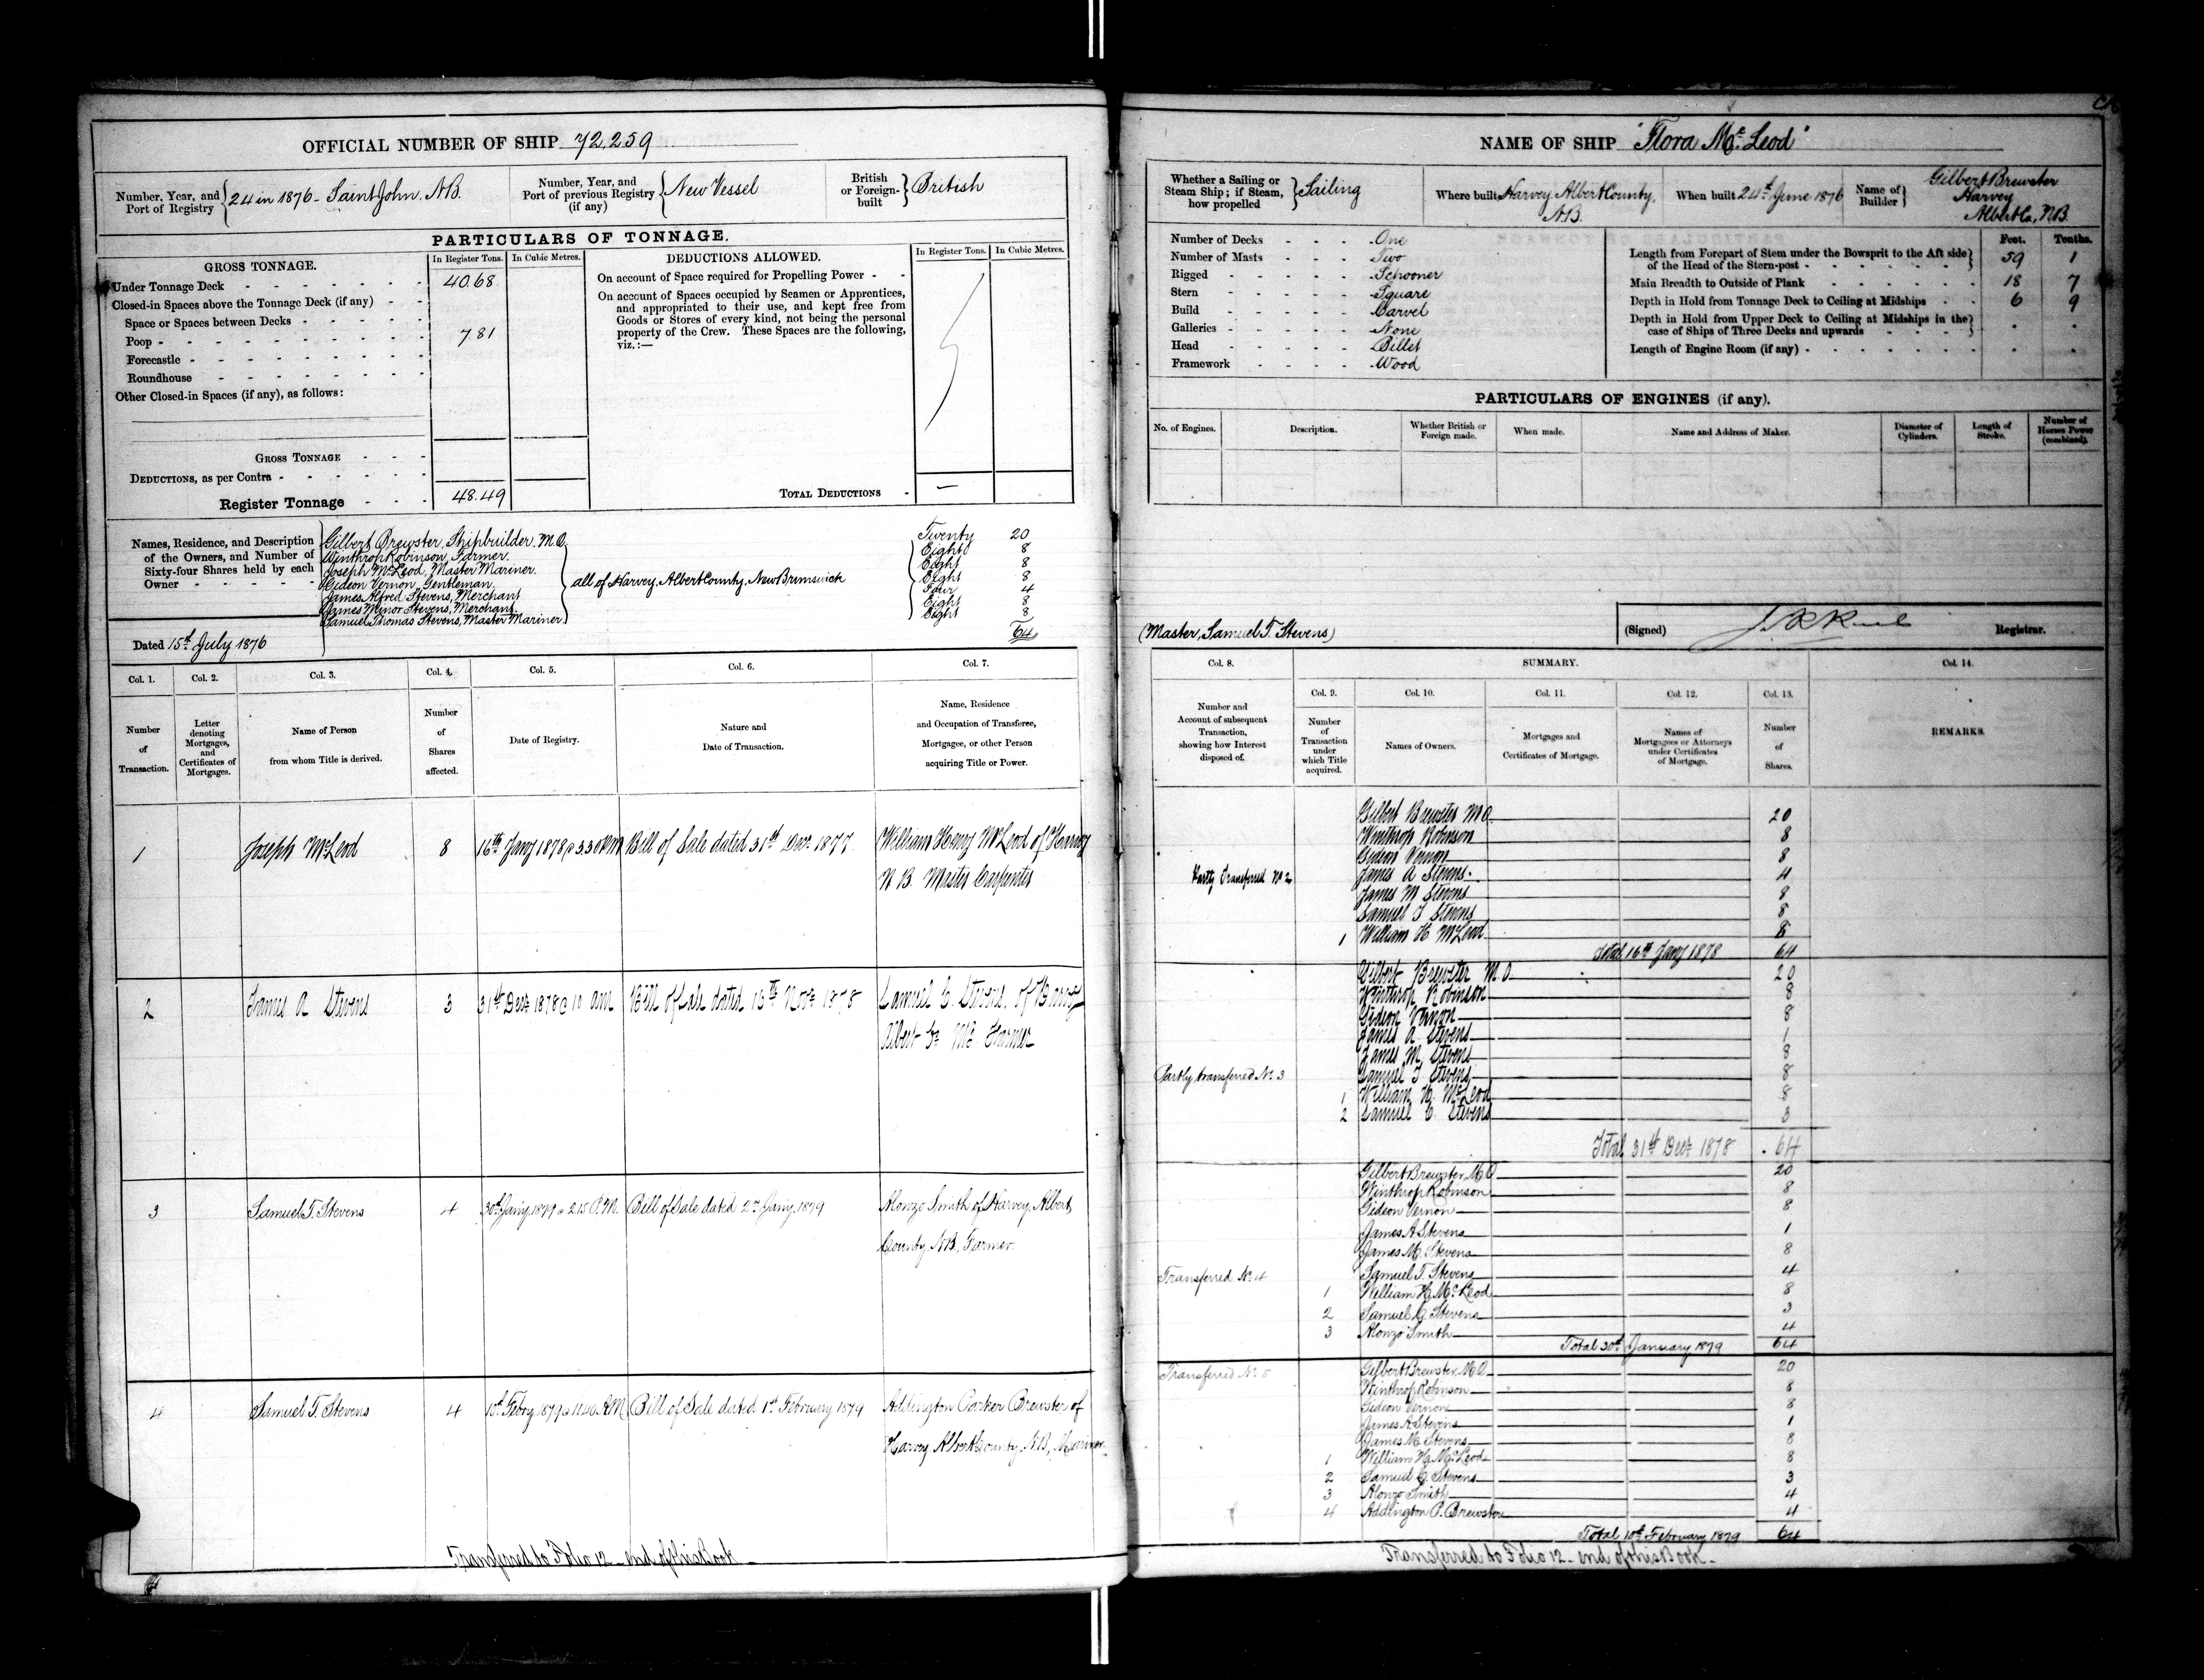 OFFICIAL NUMBER OF SHIP 72,259
Number, Year, and Port of Registry } 24 in 1876 - Saint John, N.B.
Number, Year, and Port of previous Registry (if any) { New Vessel
British or Foreign-built } British
PARTICULARS OF TONNAGE.
GROSS TONNAGE.
In Register Tons.
In Cubic Metres.
DEDUCTIONS ALLOWED.
In Register Tons.
In Cubic Metres.
Under Tonnage Deck 40.68
Closed-in Spaces above the Tonnage Deck (if any)
Space or Spaces between Decks
Poop 7 81
Forecastle
Roundhouse
Other Closed-in Spaces (if any), as follows:
On account of Space required for Propelling Power
On account of Spaces occupied by Seamen or Apprentices,
and appropriated to their use, and kept free from
Goods or Stores of every kind, not being the personal
property of the Crew. These Spaces are the following,
viz.:—
GROSS TONNAGE
DEDUCTIONS, as per Contra
Register Tonnage 48.49
TOTAL DEDUCTIONS —
Names, Residence, and Description
of the Owners, and Number of
Sixty-four Shares held by each
Owner
Gilbert Brewster, Shipbuilder. M.O. Twenty 20
Winthrop Robinson, Farmer. Eight 8
Joseph McLeod, Master Mariner. Eight 8
Gideon Vernon, Gentleman. Eight 8
all of Harvey, Albert County, New Brunswick
James Alfred Stevens, Merchant Four 4
James Minor Stevens, Merchant. Eight 8
Samuel Thomas Stevens, Master Mariner. Eight 8
64
Dated 15th July 1876
Col. 1. Col. 2. Col. 3. Col. 4. Col. 5. Col. 6. Col. 7.
Number of Transaction.
Letter denoting Mortgages, and Certificates of Mortgages.
Name of Person from whom Title is derived.
Number of Shares affected.
Date of Registry.
Nature and Date of Transaction.
Name, Residence and Occupation of Transferee, Mortgagee, or other Person acquiring Title or Power.
1 Joseph McLeod 8 16th Jany 1878 @ 3.30 PM Bill of Sale dated 31st Decr 1877. William Henry McLeod of Harvey
N B. Master Carpenter
2 James A Stevens 3 31st Decr 1878 @ 10 am Bill of Sale dated 15th Novr 1878 Samuel C. Stevens, of Harvey
Albert Farmer
3 Samuel T. Stevens 4 30th Jany 1879 @ 2.15 P.M. Bill of Sale dated 2nd Jany. 1879 Alonzo Smith of Harvey, Albert
County, N.B, Farmer.
4 Samuel T. Stevens 4 10th Febry 1879 @ 11.40 A.M. Bill of Sale dated 1st February 1879 Addington Parker Brewster of
Harvey Albert County, N.B, Mariner
Transferred to Folio 12 - end of this Book -
NAME OF SHIP "Flora McLeod"
Whether a Sailing or Steam Ship; if Steam, how propelled } Sailing
Where built Harvey, Albert County, N.B.
When built 24th June 1876
Name of Builder } Gilbert Brewster
Harvey
Albert Co., N.B.
Number of Decks One
Number of Masts Two
Rigged Schooner
Stern Square
Build Carvel
Galleries None
Head Billet
Framework Wood
Feet. Tenths.
Length from Forepart of Stem under the Bowsprit to the Aft side
of the Head of the Stern-post 59 1
Main Breadth to Outside of Plank 18 7
Depth in Hold from Tonnage Deck to Ceiling at Midships 6 9
Depth in Hold from Upper Deck to Ceiling at Midships in the
case of Ships of Three Decks and upwards
Length of Engine Room (if any)
PARTICULARS OF ENGINES (if any).
No. of Engines.
Description.
Whether British or Foreign made.
When made.
Name and Address of Maker.
Diameter of Cylinders.
Length of Stroke.
Number of Horses Power (combined).
(Master, Samuel T. Stevens)
(Signed) Registrar.
Col. 8. SUMMARY. Col. 14.
Col. 9. Col. 10. Col. 11. Col. 12. Col. 13.
Number and Account of subsequent Transaction, showing how Interest disposed of.
Number of Transaction under which Title acquired.
Names of Owners.
Mortgages and Certificates of Mortgage.
Names of Mortgagees or Attorneys under Certificates of Mortgage.
Number of Shares.
REMARKS.
Gilbert Brewster M.O. 20
Winthrop Robinson 8
Gideon Vernon 8
Partly Transferred No 2 James A Stevens 4
James M Stevens 8
Samuel T Stevens 8
1 William H McLeod 8
Total 16th Jany 1878 64
Gilbert Brewster M.O. 20
Winthrop Robinson 8
Gideon Vernon 8
James A. Stevens 1
James M. Stevens 8
Partly transferred No. 3 Samuel T Stevens 8
1 William H. McLeod 8
2 Samuel C. Stevens 3
Total 31st Decr 1878 64
Gilbert Brewster, M.O 20
Winthrop Robinson 8
Gideon Vernon 8
James A Stevens 1
James M. Stevens 8
Transferred No. 4 Samuel T. Stevens 4
1 William H. McLeod 8
2 Samuel C. Stevens 3
3 Alonzo Smith 4
Total 30th January 1879 64
Transferred No. 5 Gilbert Brewster, M.O. 20
Winthrop Robinson 8
Gideon Vernon 8
James A Stevens 1
James M. Stevens 8
1 William H. McLeod 8
2 Samuel C. Stevens 3
3 Alonzo Smith 4
4 Addington P. Brewster 4
Total 10th February 1879 64
Transferred to Folio 12 - end of this Book -